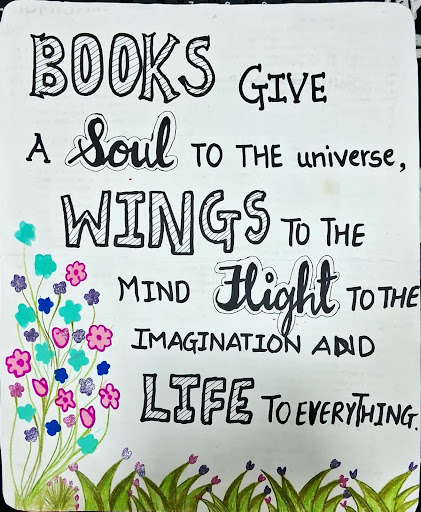 BOOKS GIVE
A Soul TO THE universe,
WINGS TO THE
MIND Flight TO THE
IMAGINATION AND
LIFE TO EVERYTHING.